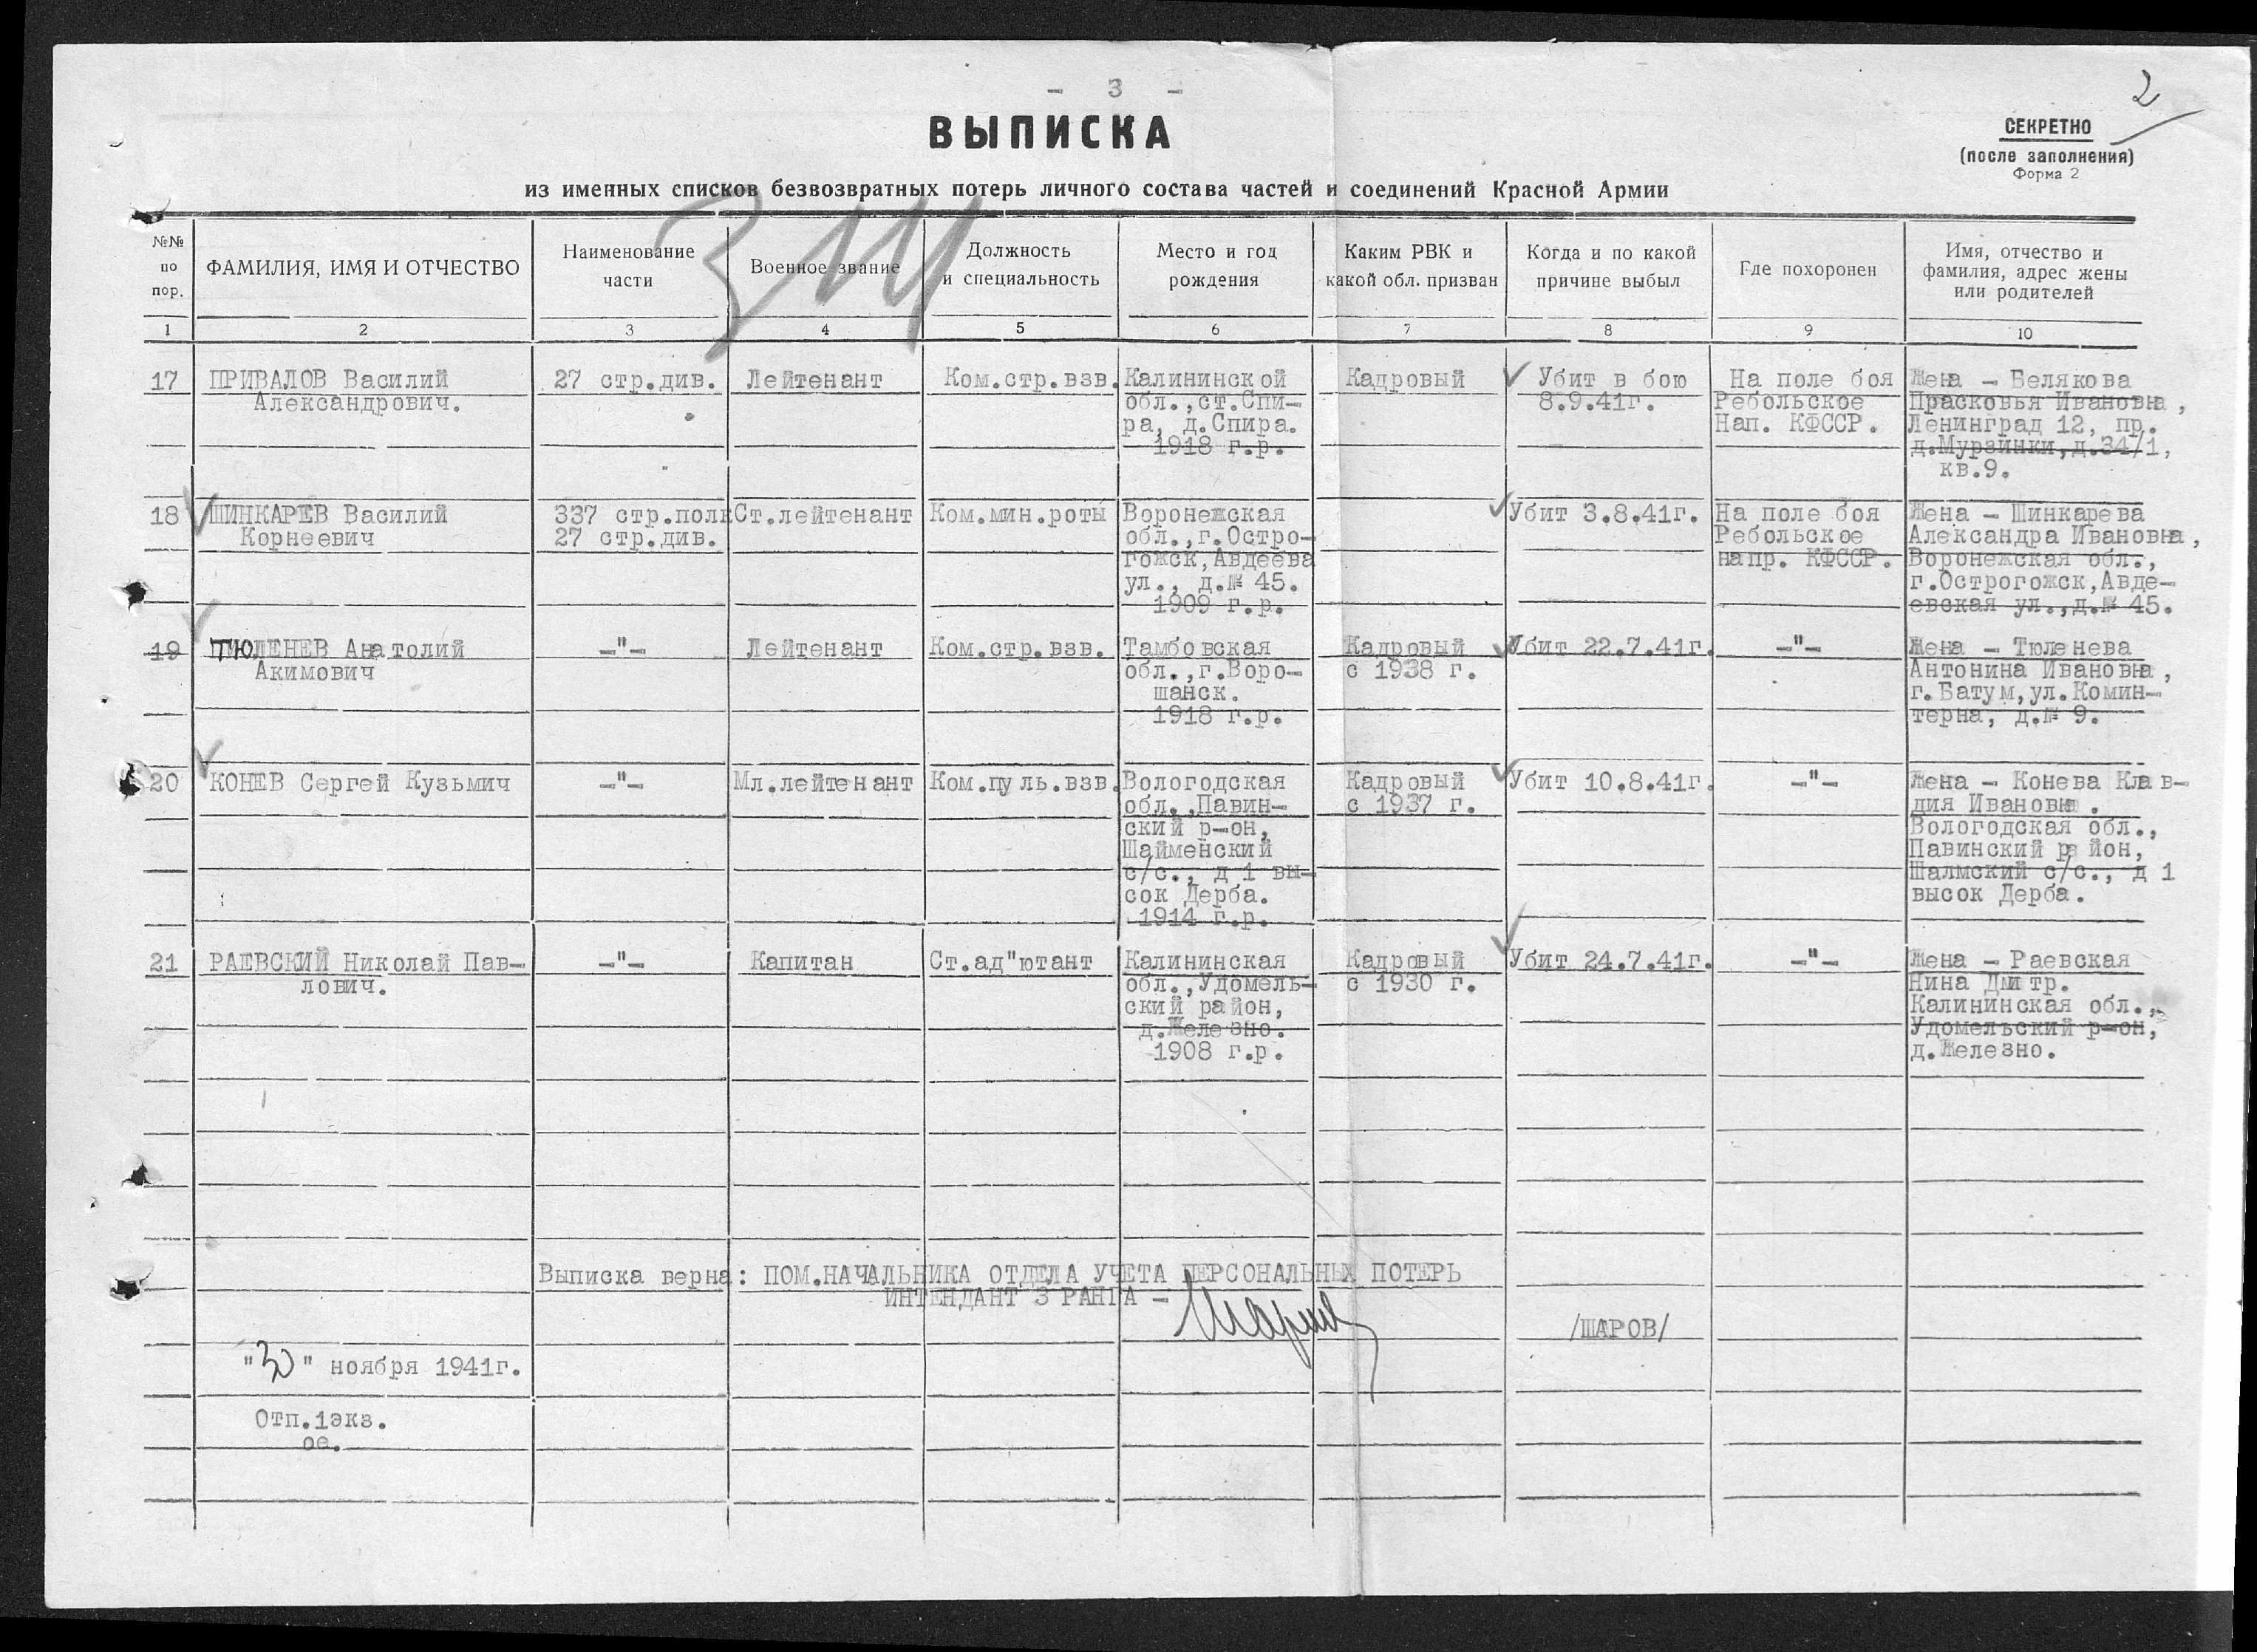 - 3 -
2
ВЫПИСКА
СЕКРЕТНО
(после заполнения)
Форма 2
из именных списков безвозвратных потерь личного состава частей и соединений Красной Армии
№№ по пор.
ФАМИЛИЯ, ИМЯ И ОТЧЕСТВО
Наименование части
Военное звание
Должность и специальность
Место и год рождения
Каким РВК и какой обл. призван
Когда и по какой причине выбыл
Где похоронен
Имя, отчество и фамилия, адрес жены или родителей
1 2 3 4 5 6 7 8 9 10
17
ПРИВАЛОВ Василий
Александрович.
27 стр.див.
Лейтенант
Ком.стр.взв.
Калининской
обл.,ст.Спи-
ра, д.Спира.
1918 г.р.
Кадровый
Убит в бою
8.9.41г.
На поле боя
Ребольское
Нап. КФССР.
Жена - Белякова
Прасковья Ивановна,
Ленинград 12, пр.
д.Мурзинки,д.34/1,
кв.9.
18
ШИНКАРЕВ Василий
Корнеевич
337 стр.полк
27 стр.див.
Ст.лейтенант
Ком.мин.роты
Воронежская
обл.,г.Остро-
гожск,Авдеева
ул., д.№ 45.
1909 г.р.
Убит 3.8.41г.
На поле боя
Ребольское
напр. КФССР.
Жена - Шинкарева
Александра Ивановна,
Воронежская обл.,
г.Острогожск,Авде-
евская ул.,д.№ 45.
19
ТЮЛЕНЕВ Анатолий
Акимович
-"-
Лейтенант
Ком.стр.взв.
Тамбовская
обл.,г.Воро-
шанск.
1918 г.р.
Кадровый
с 1938 г.
Убит 22.7.41г.
-"-
Жена - Тюленева
Антонина Ивановна,
г.Батум,ул.Комин-
терна, д.№ 9.
20
КОНЕВ Сергей Кузьмич
-"-
Мл.лейтенант
Ком.пуль.взв.
Вологодская
обл.,Павин-
ский р-он,
Шайменский
с/с., д 1 вы-
сок Дерба.
1914 г.р.
Кадровый
с 1937 г.
Убит 10.8.41г.
-"-
Жена - Конева Клав-
дия Ивановна.
Вологодская обл.,
Павинский район,
Шалмский с/с., д 1
высок Дерба.
21
РАЕВСКИЙ Николай Пав-
лович.
-"-
Капитан
Ст.ад"ютант
Калининская
обл.,Удомель-
ский район,
д.Железно.
1908 г.р.
Кадровый
с 1930 г.
Убит 24.7.41г.
-"-
Жена - Раевская
Нина Дмитр.
Калининская обл.,
Удомельский р-он,
д.Железно.
Выписка верна: ПОМ.НАЧАЛЬНИКА ОТДЕЛА УЧЕТА ПЕРСОНАЛЬНЫХ ПОТЕРЬ
ИНТЕНДАНТ 3 РАНГА -
/ШАРОВ/
"30" ноября 1941г.
Отп.1экз.
ое.